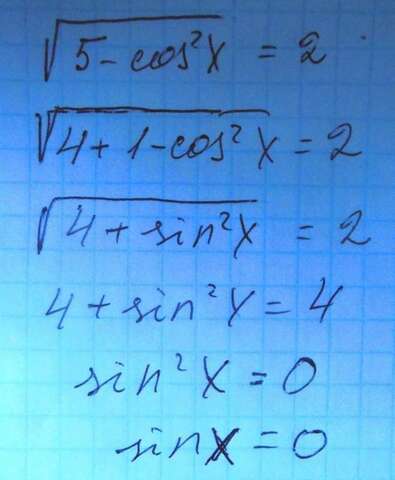 √(5-cos²x) = 2
√(4+1-cos²x) = 2
√(4+sin²x) = 2
4+sin²x=4
sin²x=0
sinx=0